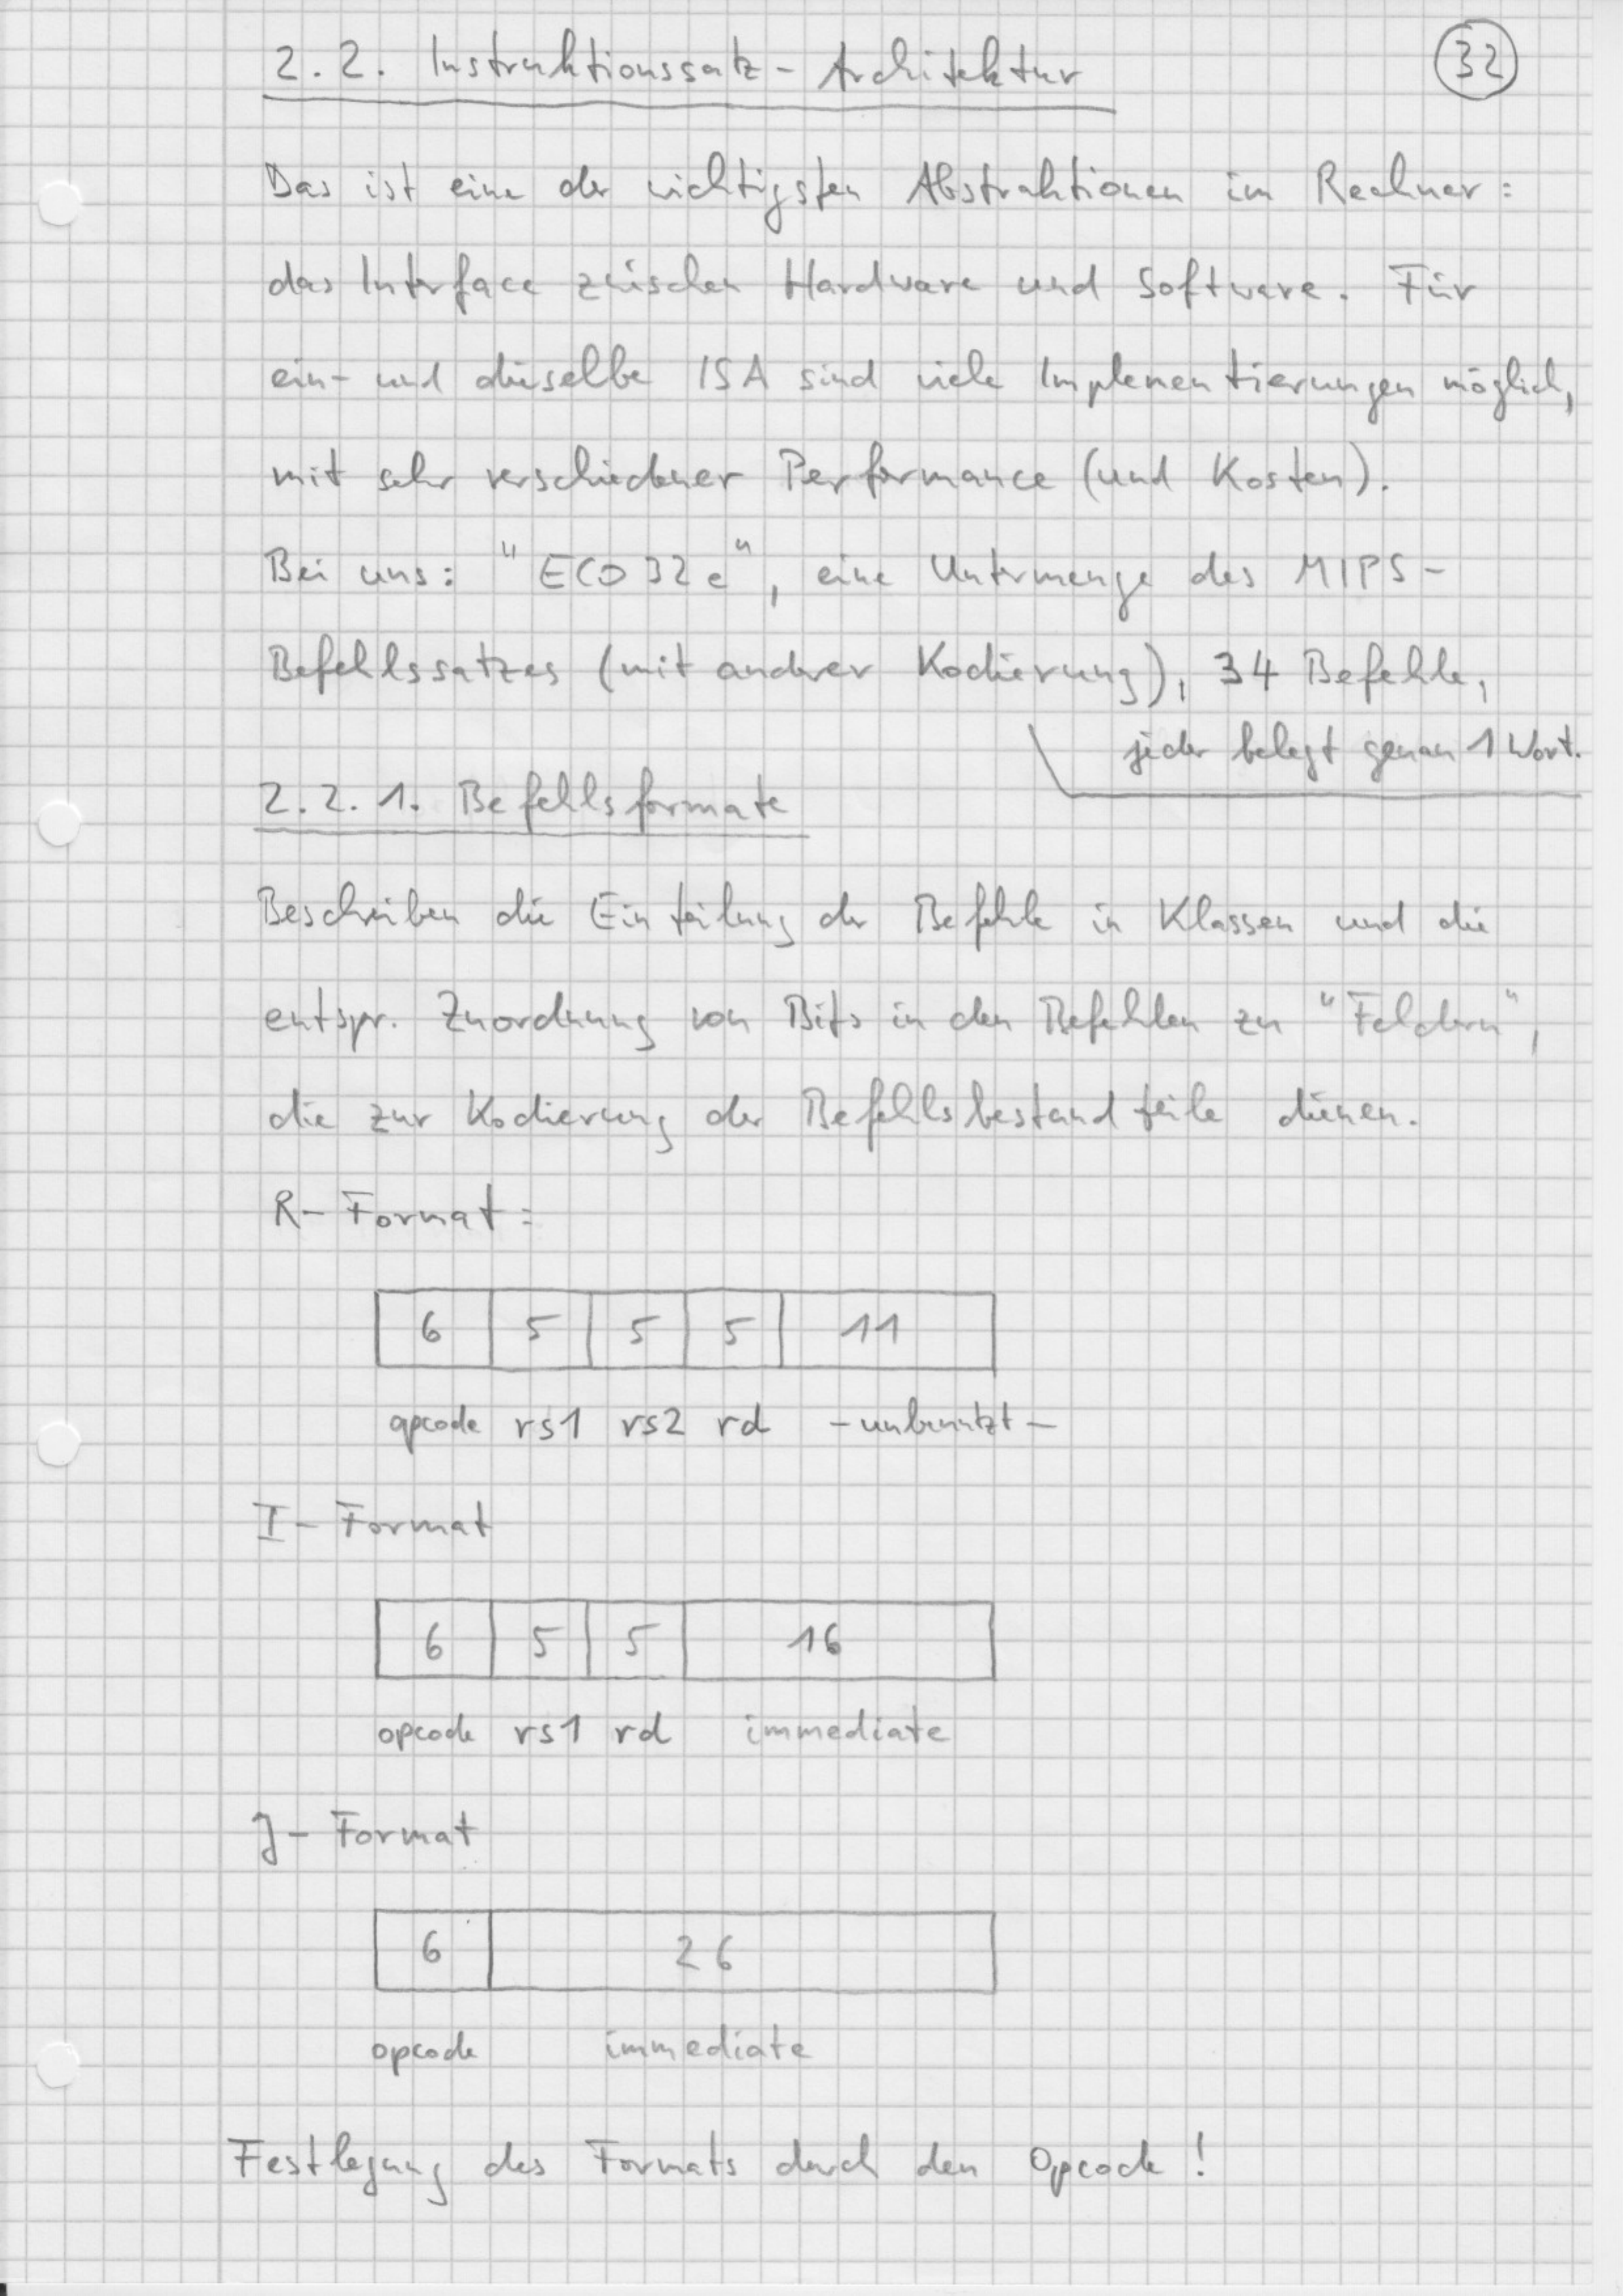 2.2. Instruktionssatz-Architektur
32
Das ist eine der wichtigsten Abstraktionen im Rechner:
das Interface zwischen Hardware und Software. Für
ein- und dieselbe ISA sind viele Implementierungen möglich,
mit sehr verschiedener Performance (und Kosten).
Bei uns: "ECO32e", eine Untermenge des MIPS-
Befehlssatzes (mit anderer Kodierung), 34 Befehle,
jeder belegt genau 1 Wort.
2.2.1. Befehlsformate
Beschreiben die Einteilung der Befehle in Klassen und die
entspr. Zuordnung von Bits in den Befehlen zu "Feldern",
die zur Kodierung der Befehlsbestandteile dienen.
R-Format:
6 5 5 5 11
opcode rs1 rs2 rd -unbenutzt-
I-Format
6 5 5 16
opcode rs1 rd immediate
J-Format
6 26
opcode immediate
Festlegung des Formats durch den Opcode!